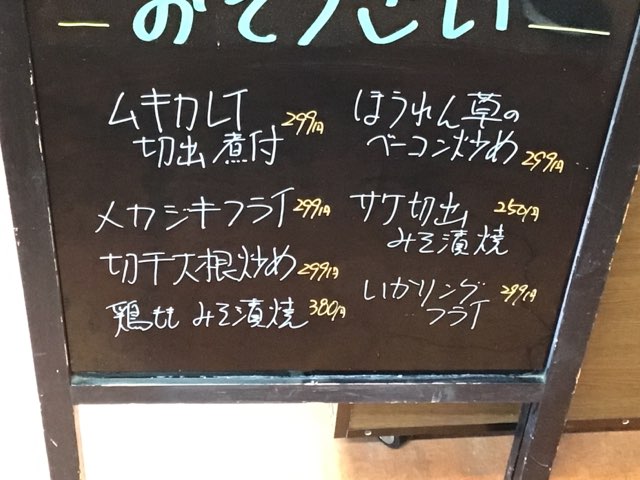 おそうざい
ムキカレイ
切出煮付 299円
メカジキフライ 299円
切干大根炒め 299円
鶏もも みそ漬焼 380円
ほうれん草の
ベーコン炒め 299円
サケ切出 250円
みそ漬焼
いかリング 299円
フライ